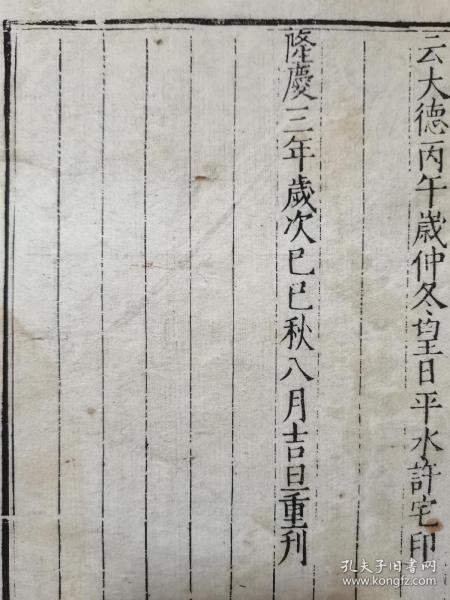 云大德丙午歲仲冬望日平水許宅印
隆慶三年歲次己巳秋八月吉旦重刊
孔夫子旧书网
www.kongfz.com